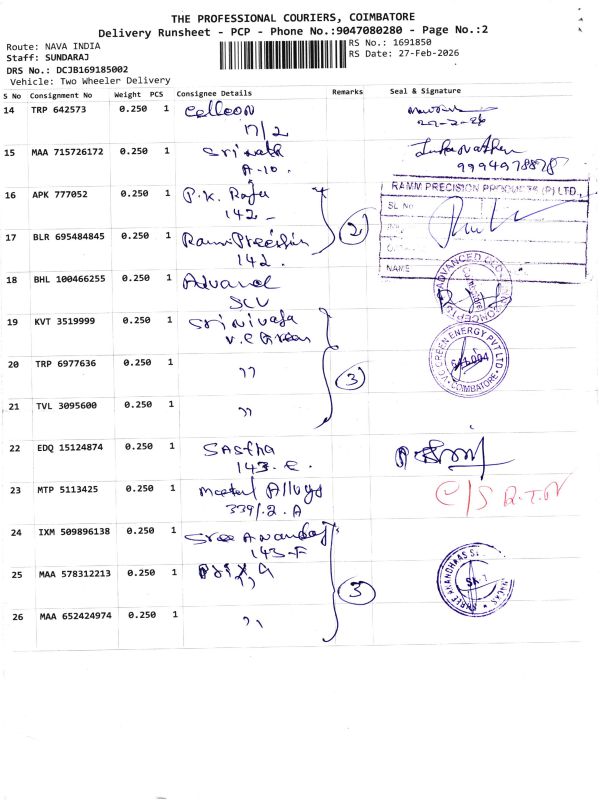 THE PROFESSIONAL COURIERS, COIMBATORE
Delivery Runsheet - PCP - Phone No.:9047080280 - Page No.:2
Route: NAVA INDIA
RS No.: 1691850
Staff: SUNDARAJ
RS Date: 27-Feb-2026
DRS No.: DCJB169185002
Vehicle: Two Wheeler Delivery
S No Consignment No Weight PCS Consignee Details Remarks Seal & Signature
14 TRP 642573 0.250 1 Celleon
17/2
27-2-26
15 MAA 715726172 0.250 1 Srinath
A-10.
9994978878
16 APK 777052 0.250 1 P.K. Raja
142 -
RAMM PRECISION PRODUCTS (P) LTD.,
SL No
17 BLR 695484845 0.250 1 Ramm Precision
142.
2
NAME
18 BHL 100466255 0.250 1 Advanced
SCV
ADVANCED
19 KVT 3519999 0.250 1 Srinivasa
V.C Green
V.C GREEN ENERGY PVT LTD
641 004
COIMBATORE
20 TRP 6977636 0.250 1 ,,
3
21 TVL 3095600 0.250 1 ,,
22 EDQ 15124874 0.250 1 Sastha
143. E.
23 MTP 5113425 0.250 1 Meetal Alloys
339/.2.A
C/S R.T.N
24 IXM 509896138 0.250 1 Sree Anandas
143-F
25 MAA 578312213 0.250 1 ,,
3
SREE ANANDHAAS
26 MAA 652424974 0.250 1 ,,